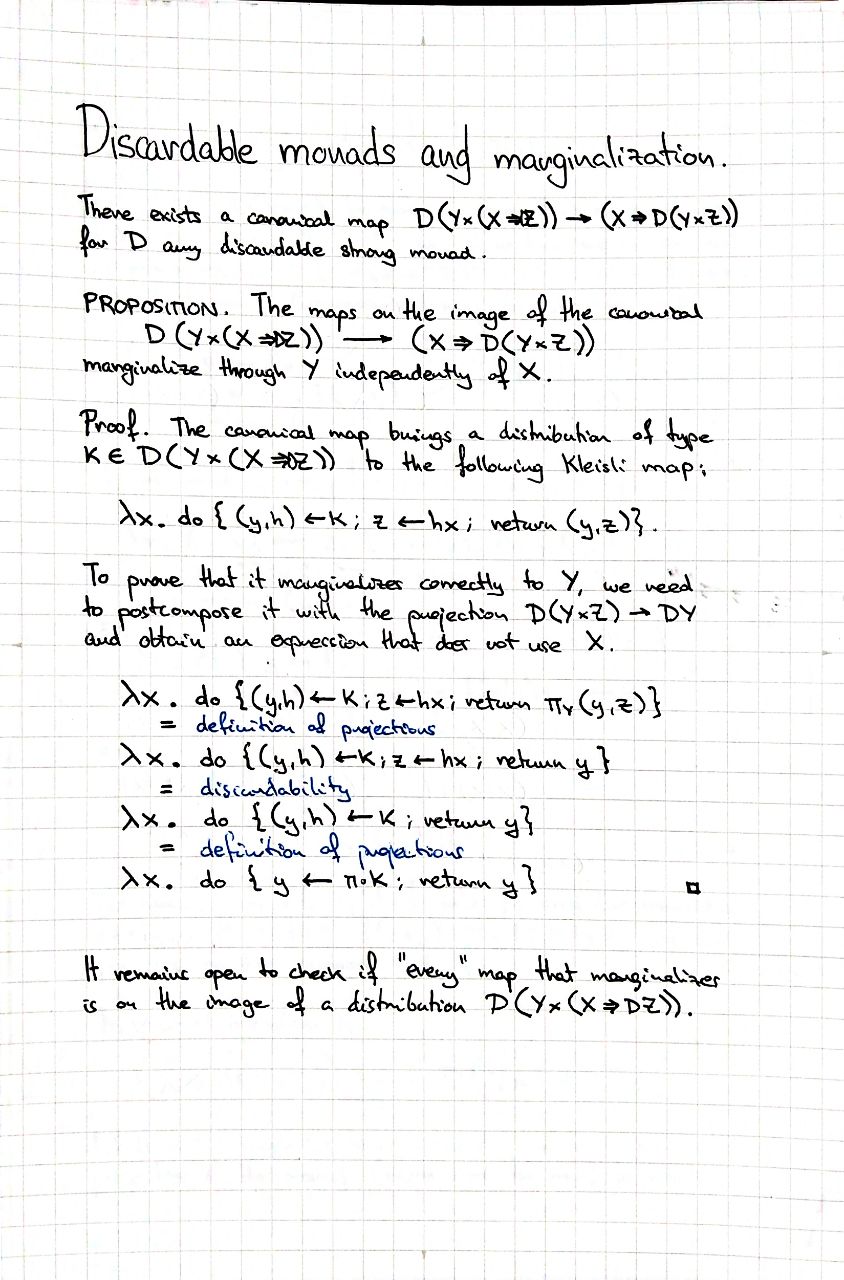 Discardable monads and marginalization.
There exists a canonical map D(Y×(X⇒DZ)) → (X⇒D(Y×Z))
for D any discardable strong monad.
PROPOSITION. The maps on the image of the canonical
D(Y×(X⇒DZ)) ⟶ (X⇒D(Y×Z))
marginalize through Y independently of X.
Proof. The canonical map brings a distribution of type
K ∈ D(Y×(X⇒DZ)) to the following Kleisli map;
λx. do {(y,h) ← K; z ← hx; return (y,z)}.
To prove that it marginalizes correctly to Y, we need
to postcompose it with the projection D(Y×Z) → DY
and obtain an expression that does not use X.
λx. do {(y,h) ← K; z ← hx; return π_Y(y,z)}
= definition of projections
λx. do {(y,h) ← K; z ← hx; return y}
= discardability
λx. do {(y,h) ← K; return y}
= definition of projections
λx. do {y ← π∘K; return y} □
It remains open to check if "every" map that marginalizes
is on the image of a distribution D(Y×(X⇒DZ)).